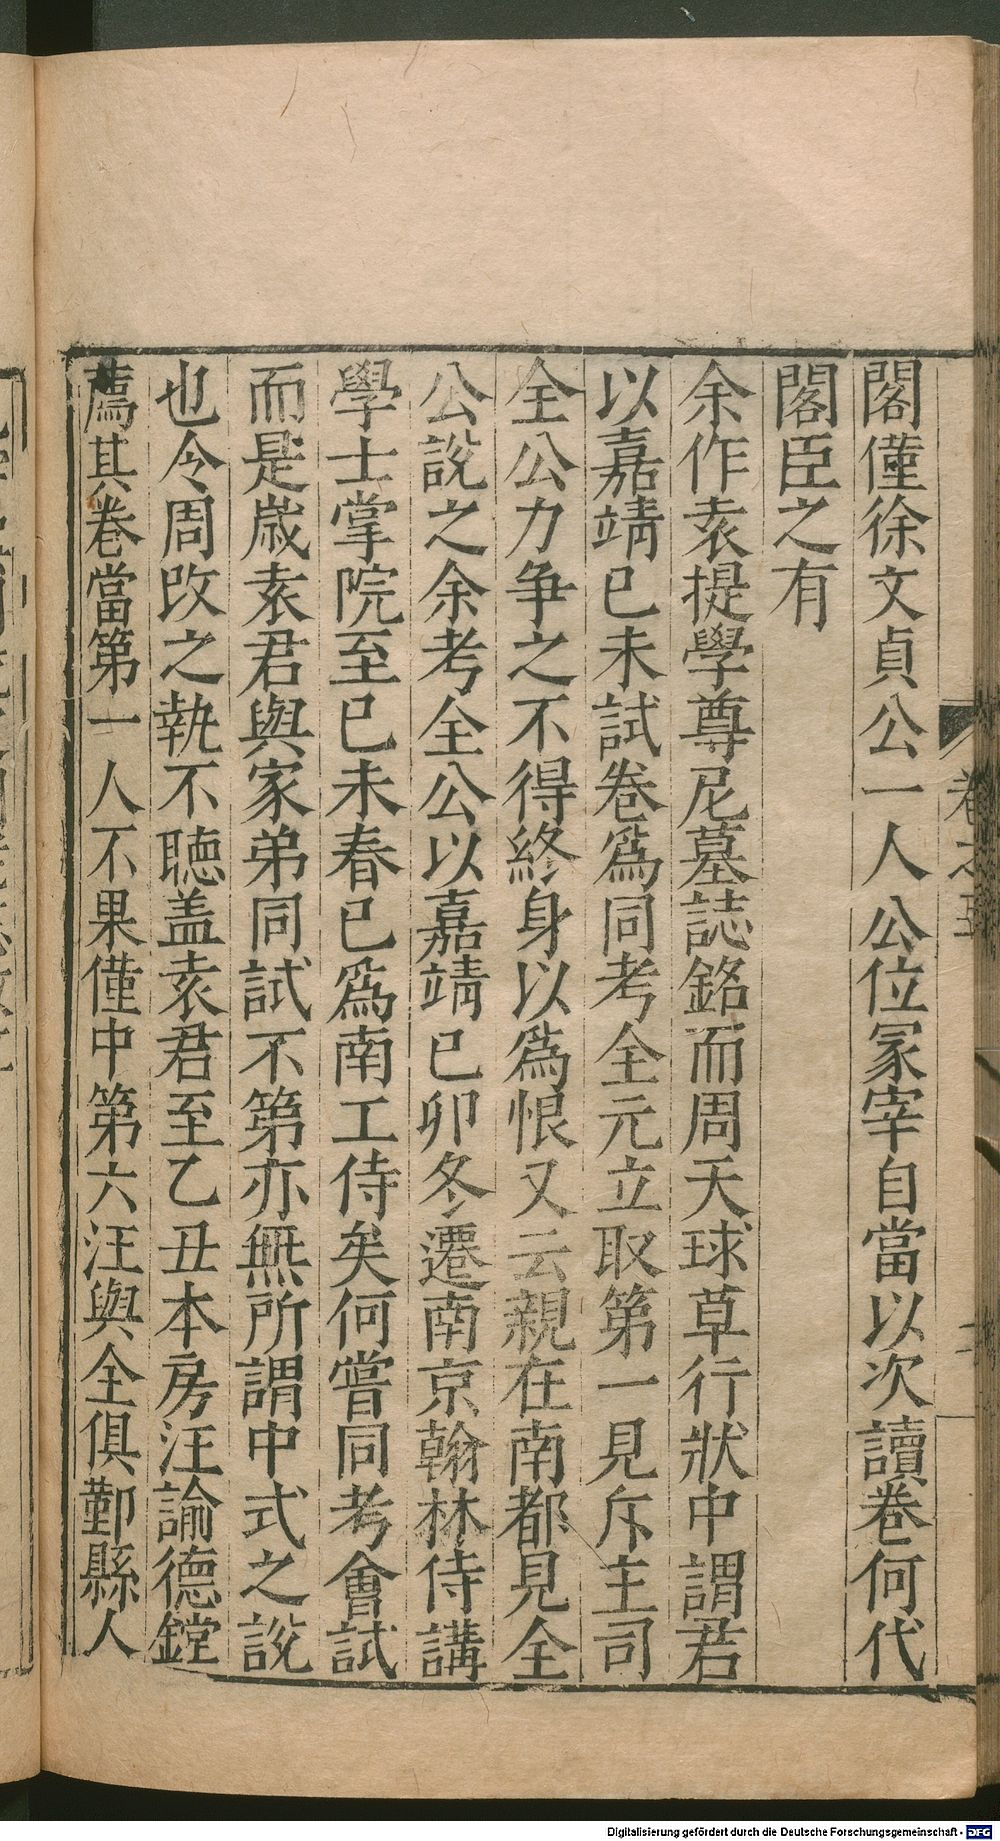 閣僅徐文貞公一人公位冡宰自當以次讀卷何代
閣臣之有
余作袁提學尊尼墓誌銘而周天球草行狀中謂君
以嘉靖已未試卷爲同考全元立取第一見斥主司
全公力争之不得終身以爲恨又云親在南都見全
公說之余考全公以嘉靖已卯冬遷南京翰林侍講
學士掌院至已未春已爲南工侍矣何嘗同考會試
而是嵗袁君與家弟同試不第亦無所謂中式之說
也令周改之執不聽盖袁君至乙丑本房汪諭德鏜
薦其卷當第一人不果僅中第六汪與全俱鄞縣人
卷之五
Digitalisierung gefördert durch die Deutsche Forschungsgemeinschaft - DFG